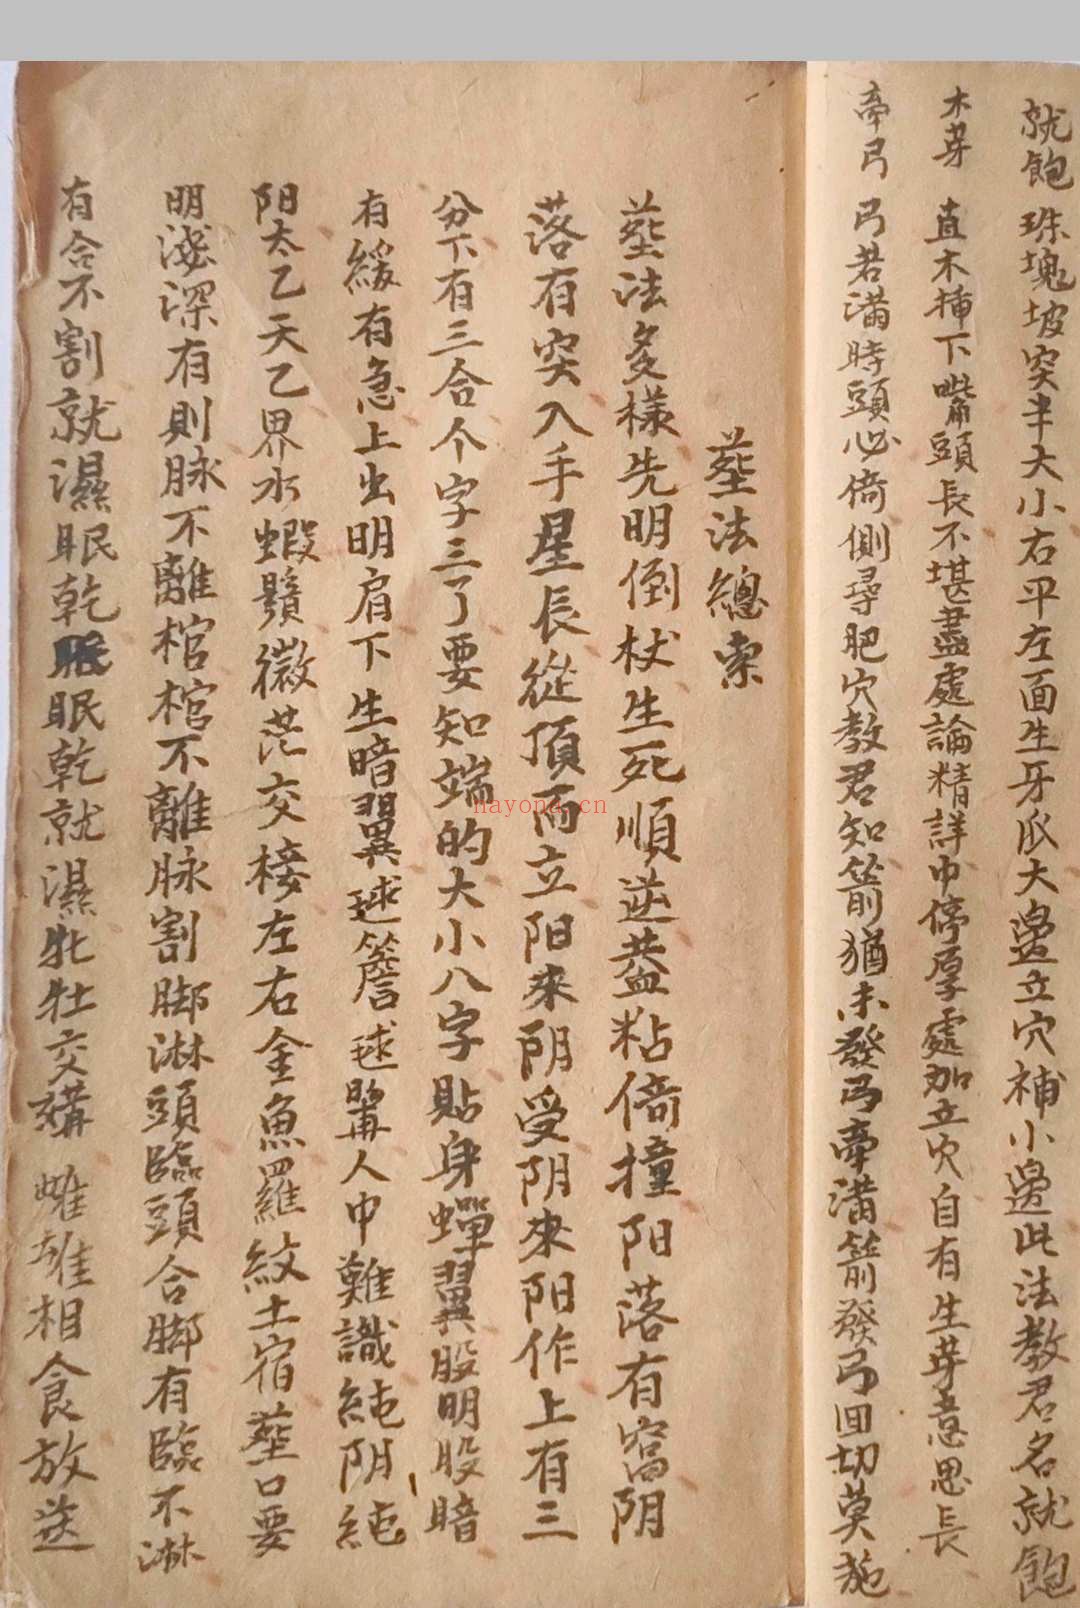 就飽 珠塊坡突半大小右平左面生牙瓜大邉立穴補小邉此法教君名就飽
木芽 直木揷下嘴頭長不堪盡處論精詳巾停厚處加立穴自有生芽意思長
牽弓 弓若满時頭必倚側尋肥穴教君知箭猶未發弓牽满箭發弓囬切莫施
塟法總索
塟法多樣先明倒杖生死順逆葢粘倚撞阳落有窩阴
落有突入手星辰從頂而立阳來阴受阴來阳作上有三
分下有三合个字三了要知端的大小八字貼身蟬翼股明股暗
有緩有急上出明肩下生暗翼毬簷毬人中難識純阴純
阳太乙天乙界水蝦鬚微茫交接左右金魚羅紋土宿塟口要
明浅深有則脉不離棺棺不離脉割脚淋頭臨頭合脚有臨不淋
有合不割就濕眠乾眠乾就濕牝牡交媾雌雄相食放送
nayona.cn